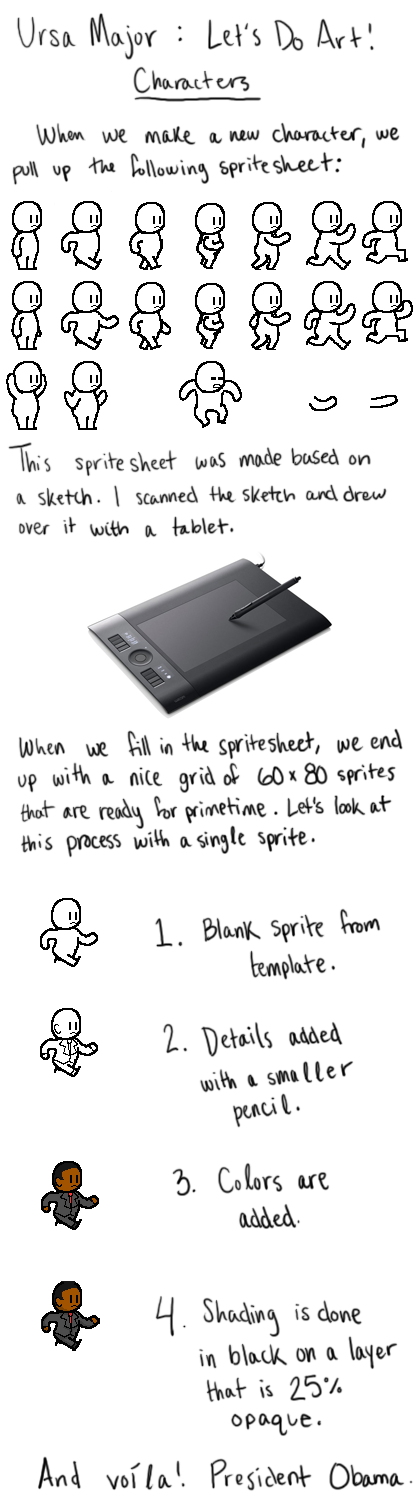 Ursa Major : Let's Do Art!
Characters
When we make a new character, we
pull up the following spritesheet:
This spritesheet was made based on
a sketch. I scanned the sketch and drew
over it with a tablet.
When we fill in the spritesheet, we end
up with a nice grid of 60x80 sprites
that are ready for primetime. Let's look at
this process with a single sprite.
1. Blank sprite from
template.
2. Details added
with a smaller
pencil.
3. Colors are
added.
4. Shading is done
in black on a layer
that is 25%
opaque.
And voíla! President Obama.